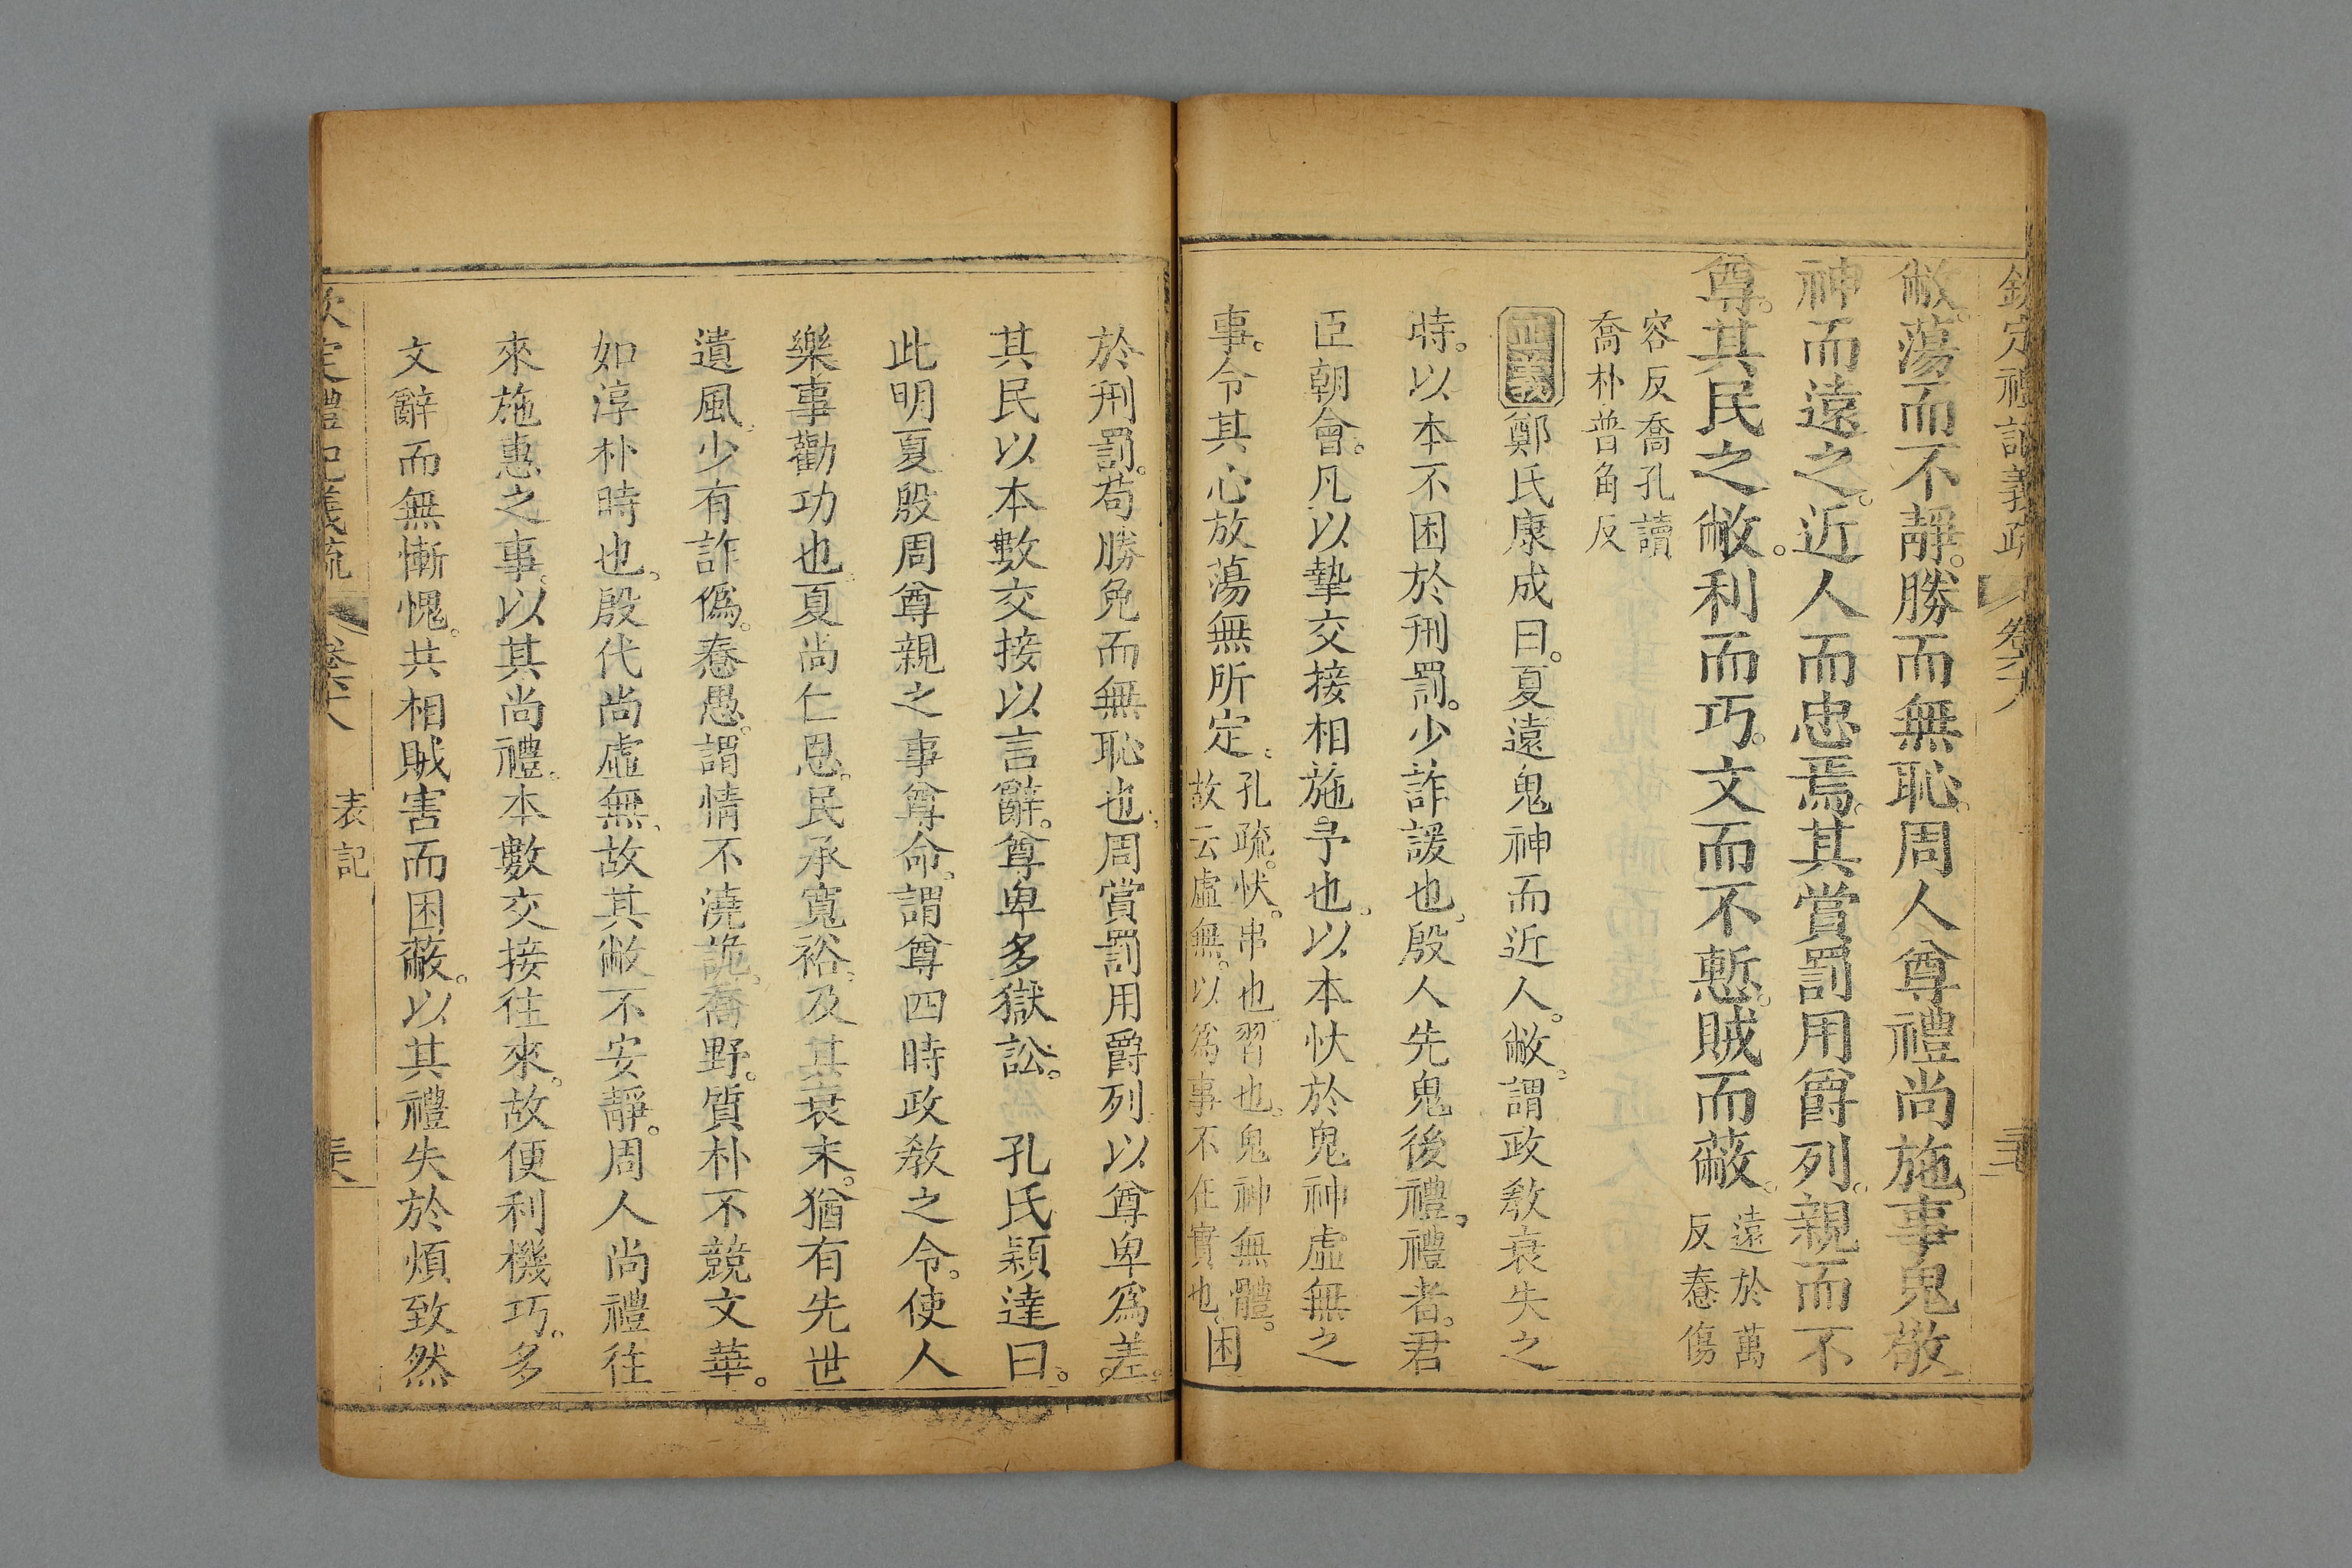 欽定禮記義疏 卷六八
敝。蕩而不靜。勝而無恥。周人尊禮尚施。事鬼敬
神而遠之。近人而忠焉。其賞罰用爵列。親而不
尊。其民之敝。利而巧。文而不慙。賊而蔽。遠於萬
反憃傷
容反喬孔讀
喬朴普角反
正義 鄭氏康成曰。夏遠鬼神而近人。敝。謂政教衰失之
時。以本不困於刑罰。少詐諼也。殷人先鬼後禮。禮者。君
臣朝會。凡以摯交接相施予也。以本忕於鬼神虛無之
事。令其心放蕩無所定。孔疏。忕。串也。習也。鬼神無體。
故云虛無。以爲事不在實也。困
於刑罰。苟勝免而無恥也。周賞罰用爵列。以尊卑爲差。
其民以本數交接以言辭。尊卑多獄訟。 孔氏穎達曰。
此明夏殷周尊親之事。尊命。謂尊四時政敎之令。使人
樂事勸功也。夏尚仁恩。民承寬裕。及其衰末。猶有先世
遺風。少有詐僞。憃愚。謂情不澆詭。喬野。質朴不競文華。
如淳朴時也。殷代尚虛無。故其敝不安靜。周人尚禮往
來施惠之事。以其尚禮。本數交接往來。故便利機巧。多
文辭而無慚愧。共相賊害而困蔽。以其禮失於煩致然
欽定禮記義疏 卷六八 表記